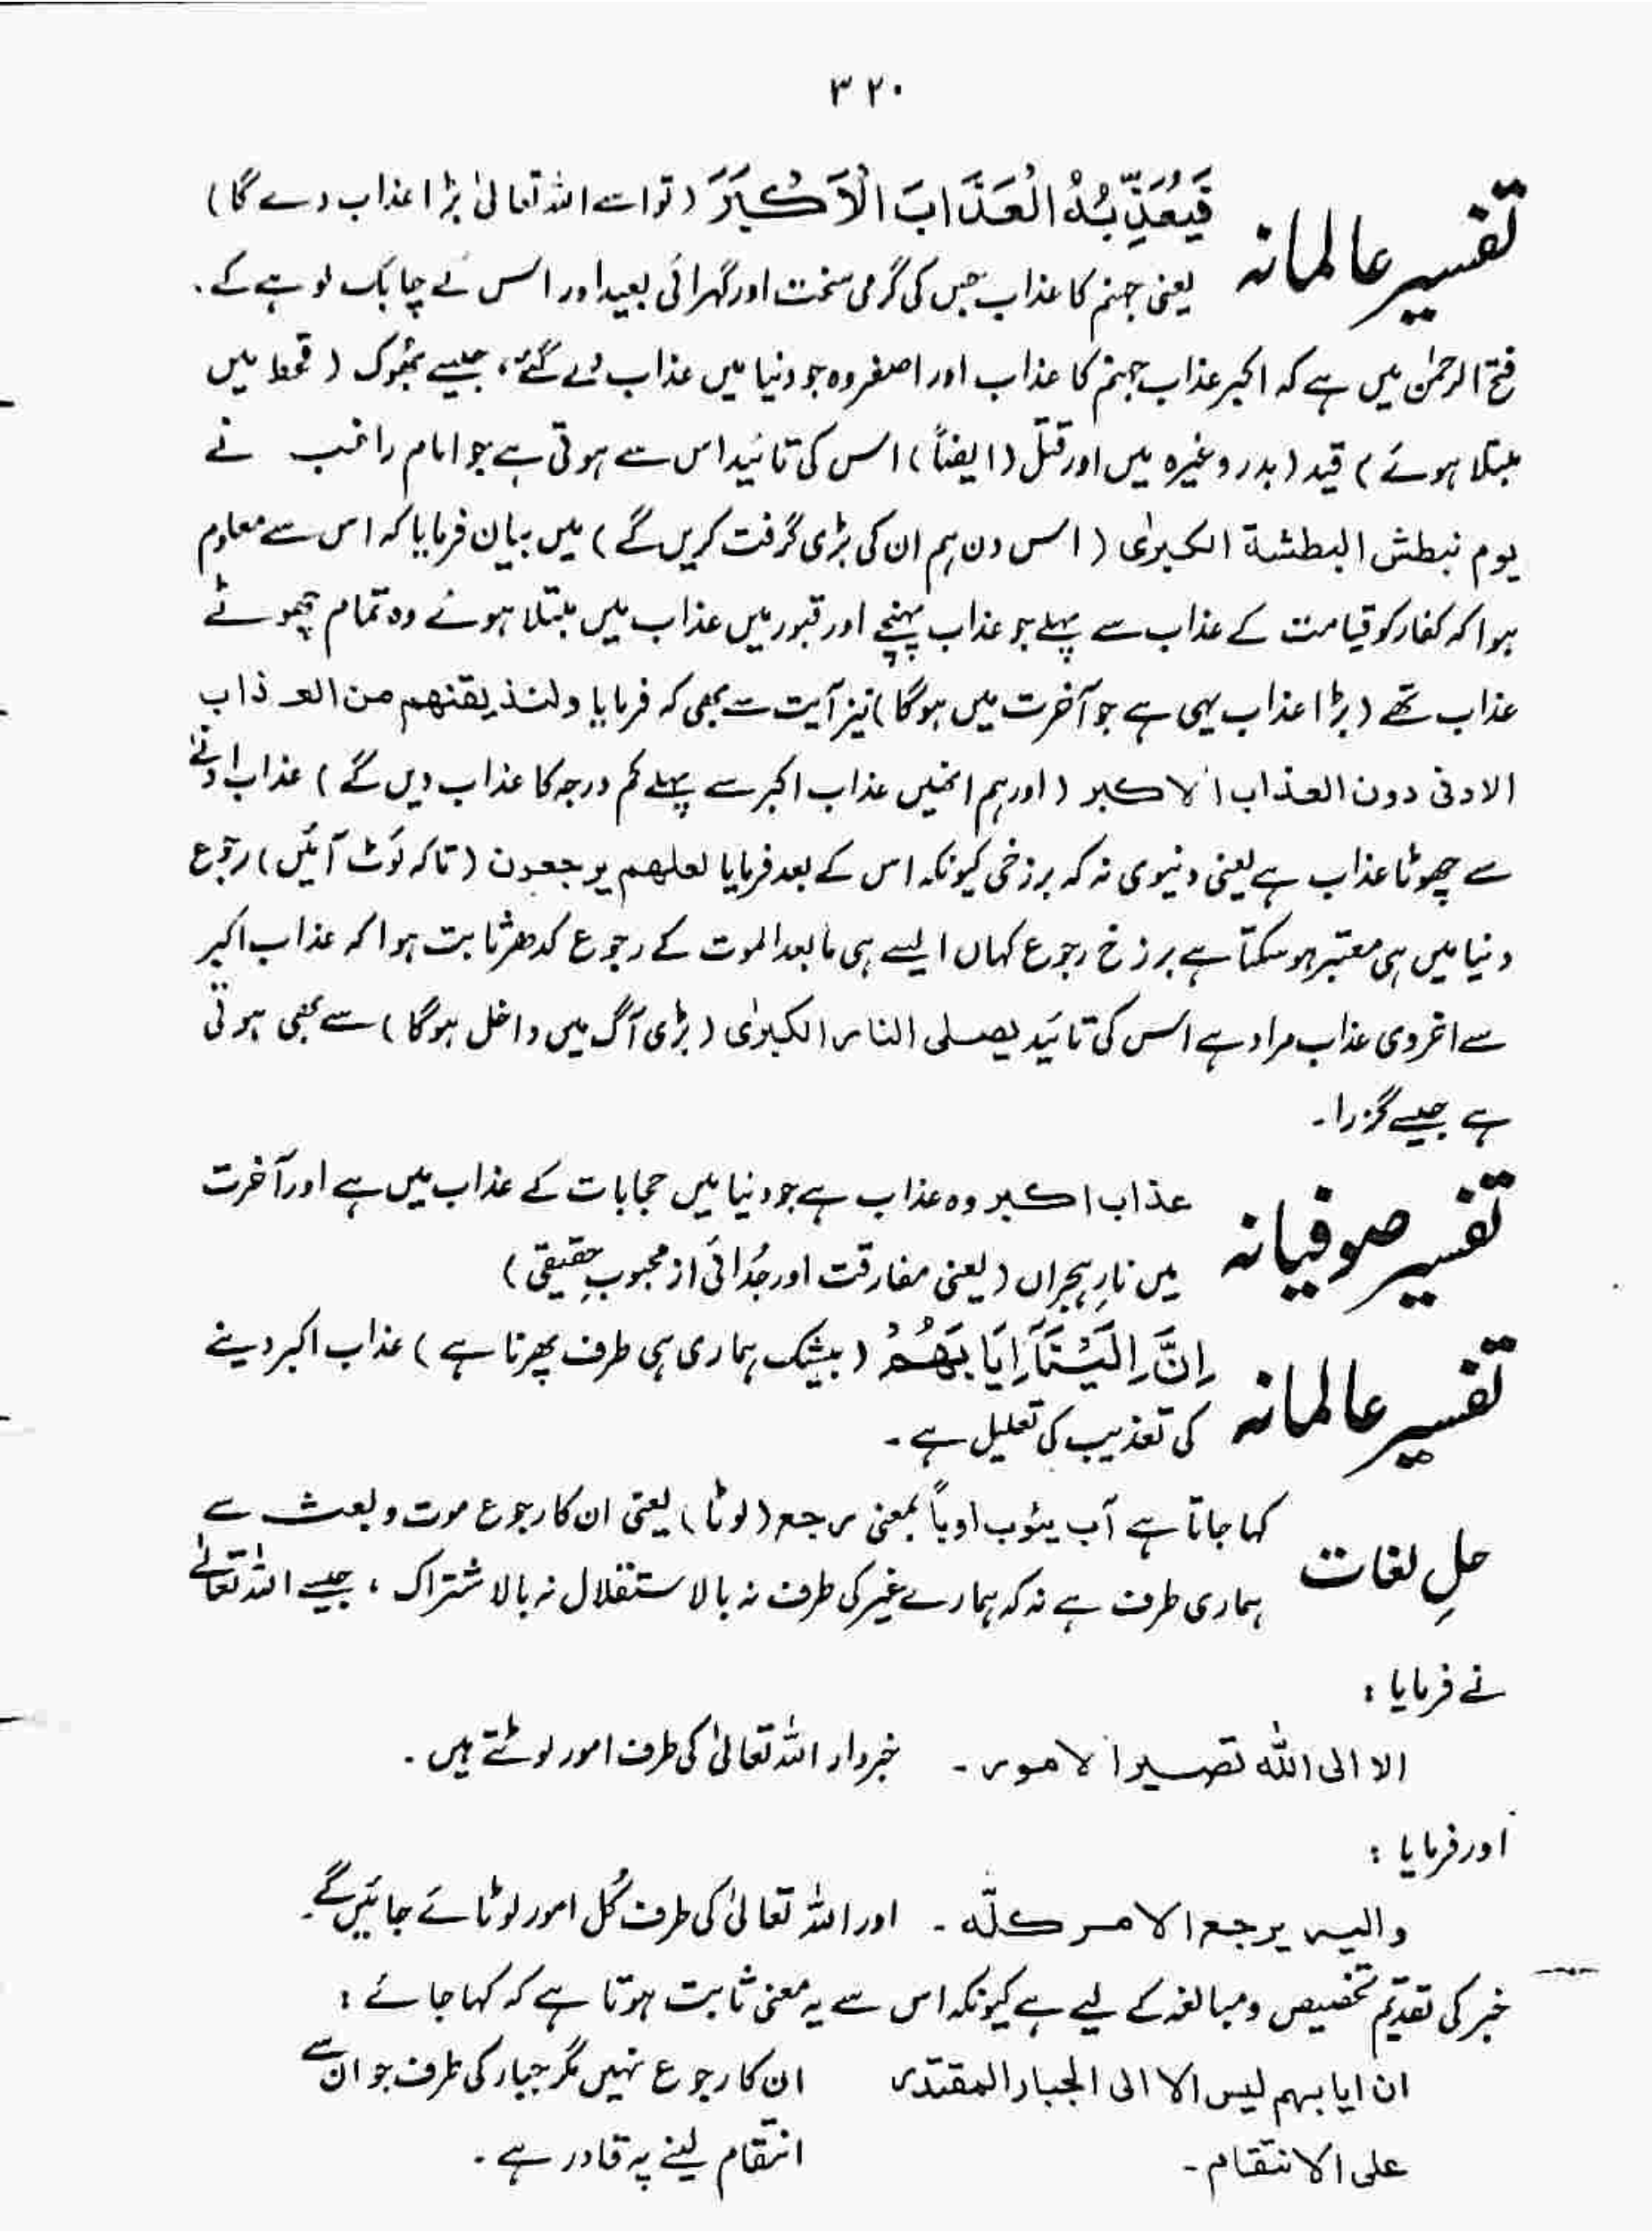 ۳۲۰
تفسیر عالمانہ
فَيُعَذِّبُهُ الْعَذَابَ الْاَكْبَرَ (تو اسے اللہ تعالیٰ بڑا عذاب دے گا)
یعنی جہنم کا عذاب جس کی گرمی سخت اور گہرائی بعید اور اس کے چابک لوہے کے.
فتح الرحمٰن میں ہے کہ اکبر عذاب جہنم کا عذاب اور اصغر وہ جو دنیا میں عذاب دئے گئے، جیسے بھُوک (قحط میں
مبتلا ہوئے) قید (بدر وغیرہ میں اور قتل (ایضاً) اس کی تائید اس سے ہوتی ہے جو امام راغب نے
یوم نبطش البطشة الکبرٰی (اس دن ہم ان کی بڑی گرفت کریں گے) میں بیان فرمایا کہ اس سے معلوم
ہوا کہ کفار کو قیامت کے عذاب سے پہلے جو عذاب پہنچے اور قبور میں عذاب میں مبتلا ہوئے وہ تمام چھوٹے
عذاب تھے (بڑا عذاب یہی ہے جو آخرت میں ہوگا) نیز آیت سے بھی کہ فرمایا ولنذیقنھم من العذاب
الادنی دون العذاب الاکبر (اور ہم انھیں عذاب اکبر سے پہلے کم درجہ کا عذاب دیں گے) عذاب ادنیٰ
سے چھوٹا عذاب ہے یعنی دنیوی نہ کہ برزخی کیونکہ اس کے بعد فرمایا لعلھم یرجعون (تاکہ لَوٹ آئیں) رجوع
دنیا میں ہی معتبر ہو سکتا ہے برزخ رجوع کہاں ایسے ہی مابعد الموت کے رجوع کدھر ثابت ہوا کہ عذاب اکبر
سے اخروی عذاب مراد ہے اس کی تائید یصلی النار الکبرٰی (بڑی آگ میں داخل ہوگا) سے بھی ہوتی
ہے جیسے گزرا۔
تفسیر صوفیانہ
عذاب اکبر وہ عذاب ہے جو دنیا میں حجابات کے عذاب میں ہے اور آخرت
میں نارِ ہجراں (یعنی مفارقت اور جُدائی از محبوبِ حقیقی)
تفسیر عالمانہ
اِنَّ اِلَيْنَآ اِيَابَهُمْ (بیشک ہماری ہی طرف پھرنا ہے) عذاب اکبر دینے
کی تعذیب کی تعلیل ہے۔
حلِ لغات
کہا جاتا ہے آب یئوب اوباً بمعنی رجع (لوٹا) یعنی ان کا رجوع موت و بعث سے
ہماری طرف ہے نہ کہ ہمارے غیر کی طرف نہ بالاستقلال نہ بالاشتراک، جیسے اللہ تعالیٰ
نے فرمایا:
الا الی اللہ تصیر الامور۔ خبردار اللہ تعالیٰ کی طرف امور لوٹتے ہیں۔
اور فرمایا:
والیہ یرجع الامر کلّہ۔ اور اللہ تعالیٰ کی طرف کُل امور لوٹائے جائیں گے۔
خبر کی تقدیم تخصیص و مبالغہ کے لیے ہے کیونکہ اس سے یہ معنی ثابت ہوتا ہے کہ کہا جائے:
ان ایابہم لیس الا الی الجبار المقتدر ان کا رجوع نہیں مگر جبار کی طرف جو ان سے
علی الانتقام۔ انتقام لینے پہ قادر ہے۔